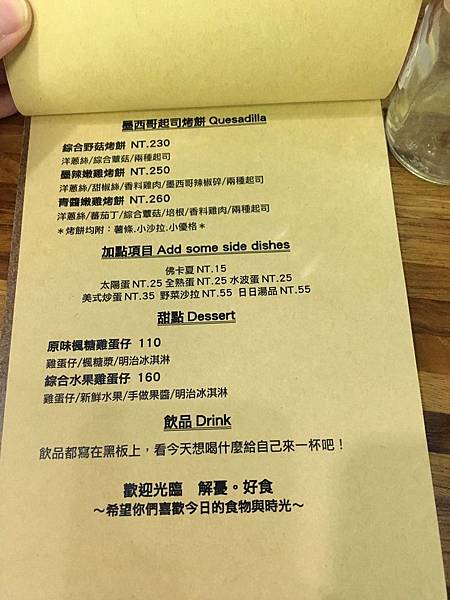 墨西哥起司烤餅 Quesadilla
綜合野菇烤餅 NT.230
洋蔥絲/綜合蕈菇/兩種起司
墨辣嫩雞烤餅 NT.250
洋蔥絲/甜椒絲/香料雞肉/墨西哥辣椒碎/兩種起司
青醬嫩雞烤餅 NT.260
洋蔥絲/蕃茄丁/綜合蕈菇/培根/香料雞肉/兩種起司
＊烤餅均附：薯條.小沙拉.小優格＊
加點項目 Add some side dishes
佛卡夏 NT.15
太陽蛋 NT.25 全熟蛋 NT.25 水波蛋 NT.25
美式炒蛋 NT.35 野菜沙拉 NT.55 日日湯品 NT.55
甜點 Dessert
原味楓糖雞蛋仔 110
雞蛋仔/楓糖漿/明治冰淇淋
綜合水果雞蛋仔 160
雞蛋仔/新鮮水果/手做果醬/明治冰淇淋
飲品 Drink
飲品都寫在黑板上，看今天想喝什麼給自己來一杯吧！
歡迎光臨 解憂。好食
～希望你們喜歡今日的食物與時光～